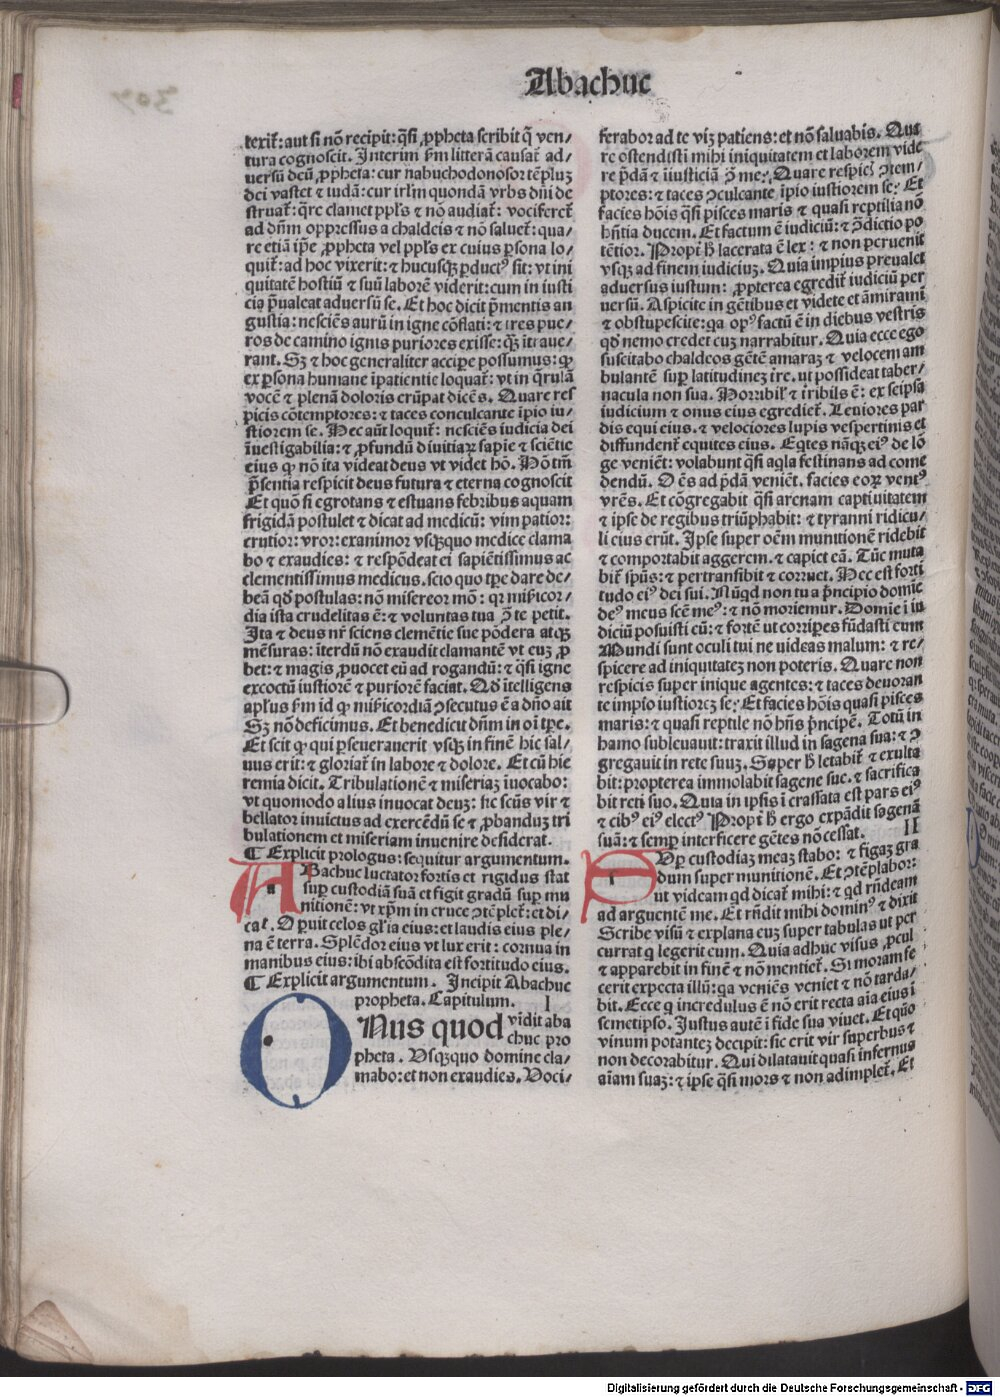 Abachuc
texit̃: aut si nõ recipit: q̃si ꝓpheta scribit q̃ ven/
tura cognoscit. Interim ẜm litterã causat̃ ad/
versũ deũ ꝓpheta: cur nabuchodonosor tẽpluȝ
dei vastet ⁊ iudã: cur irl̃m quondã vrbs dñi de
struat̃: q̃re clamet ppl̃s ⁊ nõ audiat̃: vociferet̃
ad dñm oppressus a chaldeis ⁊ nõ saluet̃: qua/
re etiã ip̃e ꝓpheta vel ppl̃s ex cuius ꝑsona lo/
quit̃: ad hoc vixerit: ⁊ hucusqȝ ꝑductꝰ sit: vt ini
quitatẽ hostiũ ⁊ suũ laborẽ viderit: cum in iusti
cia p̃ualeat adversũ se. Et hoc dicit p̃mentis an
gustia: nesciẽs aurũ in igne cõflari: ⁊ tres pue/
ros de camino ignis puriores exisse: qȝ̃ itraue/
rant. Sȝ ⁊ hoc generaliter accipe possumus: ꝙ
ex ꝑsona humane ĩpatientie loquat̃: vt in q̃rulã
vocẽ ⁊ plenã doloris erũpat dicẽs. Quare res
picis cõtemptores: ⁊ taces conculcante ĩpio iu/
stiorem se. Hec aũt loquit̃: nesciẽs iudicia dei
ĩuestigabilia: ⁊ ꝓfundũ diuitiaꝝ sapiẽ ⁊ sciẽtie
eius ꝙ nõ ita videat deus vt videt hõ. Hõ tm̃
p̃sentia respicit deus futura ⁊ eterna cognoscit
Et quõ si egrotans ⁊ estuans febribus aquam
frigidã postulet ⁊ dicat ad medicũ: vim patior:
crutior: vror: exanimor vsq̃quo medice clama
bo ⁊ exaudies: ⁊ respõdeat ei sapiẽtissimus ac
clementissimus medicus. scio quo tp̃e dare de/
beã qď postulas: nõ misereor mõ: qr miẜicor/
dia ista crudelitas ẽ: ⁊ voluntas tua ↄ̃ te petit.
Ita ⁊ deus nr̃ sciens clemẽtie sue põdera atqȝ
mẽsuras: ĩterdũ nõ exaudit clamantẽ vt euȝ ꝓ
bet: ⁊ magis ꝓuocet eũ ad rogandũ: ⁊ q̃si igne
excoctũ iustiorẽ ⁊ puriorẽ faciat. Qď ĩtelligens
apl̃us ẜm id ꝙ miẜicordiã ↄsecutus ẽ a dño ait
Sȝ nõ deficimus. Et benedicit dñm in oĩ tp̃e.
Et scit ꝙ qui ꝑseuerauerit vsqȝ in finẽ hic sal/
uus erit: ⁊ gloriat̃ in labore ⁊ dolore. Et cũ hie
remia dicit. Tribulationẽ ⁊ miseriaȝ ĩuocabo:
vt quomodo alius inuocat deuȝ: hc scũs vir ⁊
bellator inuictus ad exercẽdũ se ⁊ ꝓbanduȝ tri
bulationem et miseriam inuenire desiderat.
¶ Explicit prologus: sequitur argumentum.
ABachuc luctator fortis et rigidus stat
suꝑ custodiã suã et figit gradũ suꝑ mu
nitionẽ: vt xp̃m in cruce ↄtẽplet̃: et di/
cat. Operuit celos gl̃ia eius: et laudis eius ple/
na ẽ terra. Splẽdor eius vt lux erit: cornua in
manibus eius: ibi abscõdita est fortitudo eius.
¶ Explicit argumentum. Incipit Abachuc
propheta. Capitulum. I
ONus quod vidit aba
chuc pro
pheta. Vsqȝquo domine cla/
mabo: et non exaudies. Voci/
ferabor ad te viȝ patiens: et nõ saluabis. Qua
re ostendisti mihi iniquitatem et laborem vide
re p̃dã ⁊ iniusticiã ↄ̃ me: Quare respicis ↄtem/
ptores: ⁊ taces ↄculcante ĩpio iustiorem se: Et
facies hoĩs q̃si pisces maris ⁊ quasi reptilia nõ
hñtia ducem. Et factum ẽ iudiciũ: ⁊ ↄ̃dictio po
tẽtior. Propt̃ h̃ lacerata ẽ lex: ⁊ non peruenit
vsqȝ ad finem iudiciuȝ. Quia impius preualet
aduersus iustum: ꝓpterea egredit̃ iudiciũ per
uersũ. Aspicite in gẽtibus et videte et ãmiramĩ
⁊ obstupescite: qa opꝰ factũ ẽ in diebus vestris
qď nemo credet cuȝ narrabitur. Quia ecce ego
suscitabo chaldeos gẽtẽ amaraȝ ⁊ velocem am
bulantẽ suꝑ latitudineȝ tr̃e. ut possideat taber/
nacula non sua. Horribil̃ ⁊ tr̃ibilis ẽ: ex seipsa
iudicium ⁊ onus eius egrediet̃. Leuiores par
dis equi eius. ⁊ velociores lupis vespertinis et
diffundent̃ equites eius. Eq̃tes nãqȝ eiꝰ de lõ
ge veniẽt: volabunt q̃si aqla festinans ad come
dendũ. Oẽs ad p̃dã veniẽt. facies eoꝝ ventꝰ
vrẽs. Et cõgregabit q̃si arenam captiuitatem
⁊ ipse de regibus triũphabit: ⁊ tyranni ridicu/
li eius erũt. Ipse super oẽm munitionẽ ridebit
⁊ comportabit aggerem. ⁊ capiet eã. Tũc muta
bit̃ spũs: ⁊ pertransibit ⁊ corruet. Hec est forti
tudo eiꝰ dei sui. Nũqd non tu a p̃ncipio domĩe
deꝰ meus scẽ meꝰ: ⁊ nõ moriemur. Domĩe ĩ iu
diciũ posuisti cũ: ⁊ fortẽ ut corriperes fũdasti eum
Mundi sunt oculi tui ne uideas malum: ⁊ re/
spicere ad iniquitateȝ non poteris. Quare non
respicis super inique agentes: ⁊ taces deuoran
te impio iustioreȝ se: Et facies hoĩs quasi pisces
maris: ⁊ quasi reptile nõ hñs p̃ncipẽ. Totũ in
hamo subleuauit: traxit illud in sagena sua: ⁊ ↄ
gregauit in rete suuȝ. Super h̃ letabit̃ ⁊ exulta
bit: propterea immolabit sagene sue. ⁊ sacrifica
bit reti suo. Quia in ipsis ĩcrassata est pars eiꝰ
⁊ cibꝰ eiꝰ electꝰ Propt̃ h̃ ergo expãdit sagenã
suã: ⁊ semꝑ interficere gẽtes nõ cessat. II
SVꝑ custodiaȝ meaȝ stabo: ⁊ figaȝ gra
dum super munitionẽ. Et ↄtẽplabor:
ut videam qd dicat̃ mihi: ⁊ qd rñdeam
ad arguentẽ me. Et rñdit mihi dominꝰ ⁊ dixit
Scribe visũ ⁊ explana euȝ super tabulas ut per
currat q legerit eum. Quia adhuc visus ꝓcul
⁊ apparebit in finẽ ⁊ nõ mentiet̃. Si moram fe
cerit expecta illũ: qa veniẽs veniet ⁊ nõ tarda/
bit. Ecce q incredulus ẽ nõ erit recta aĩa eius ĩ
semetipso. Iustus autẽ ĩ fide sua viuet. Et quõ
vinum potanteȝ decipit: sic erit vir superbus ⁊
non decorabitur. Qui dilatauit quasi infernus
aĩam suaȝ: ⁊ ipse q̃si mors ⁊ non adimplet̃. Et
Digitalisierung gefördert durch die Deutsche Forschungsgemeinschaft - DFG